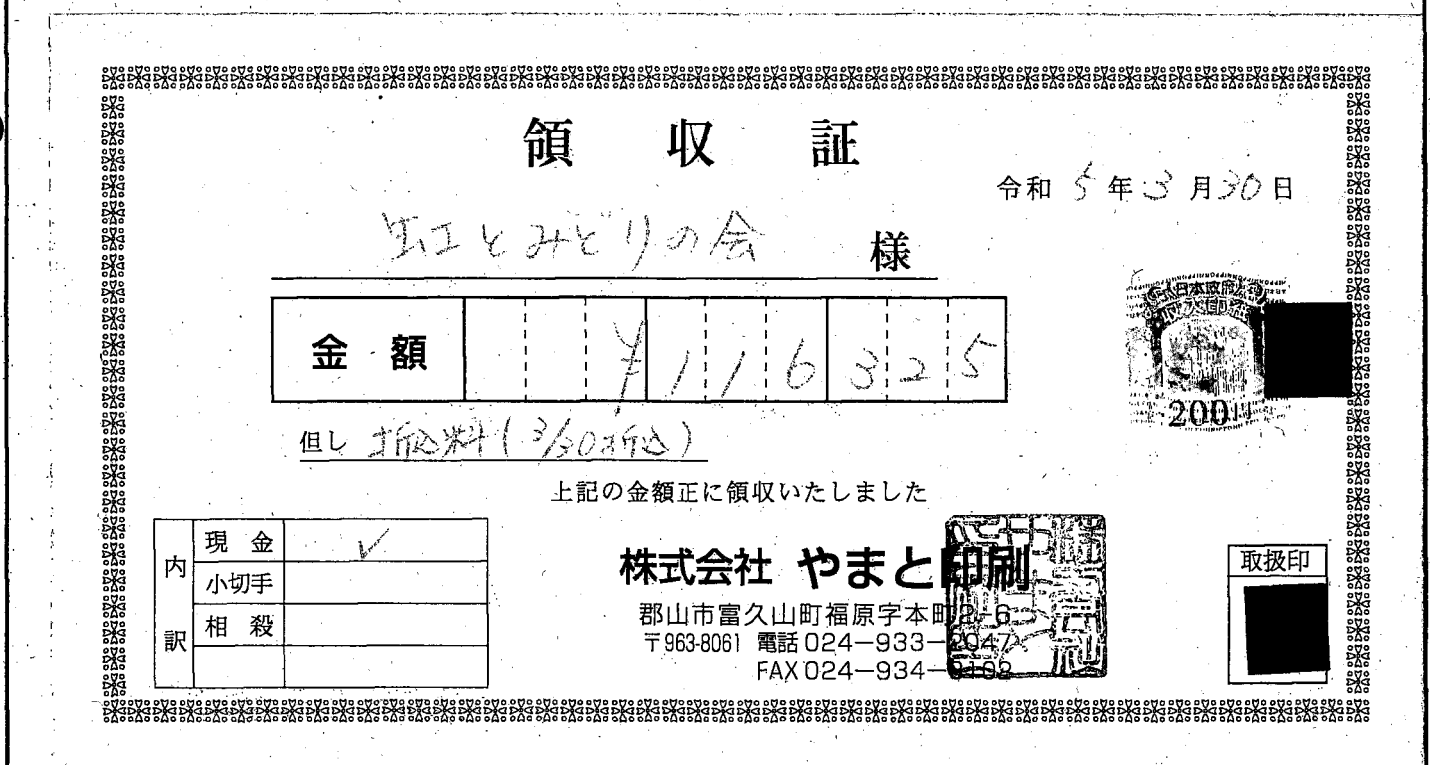 領収証
令和 5 年 3 月 30 日
虹とみどりの会 様
金額 ¥116325
日本政府
収入印紙
200円
但し 折込料(3/30折込)
上記の金額正に領収いたしました
内訳
現金 ✓
小切手
相殺
株式会社 やまと印刷
郡山市富久山町福原字本町2-6
〒963-8061 電話024-933-2047
FAX024-934-3102
取扱印